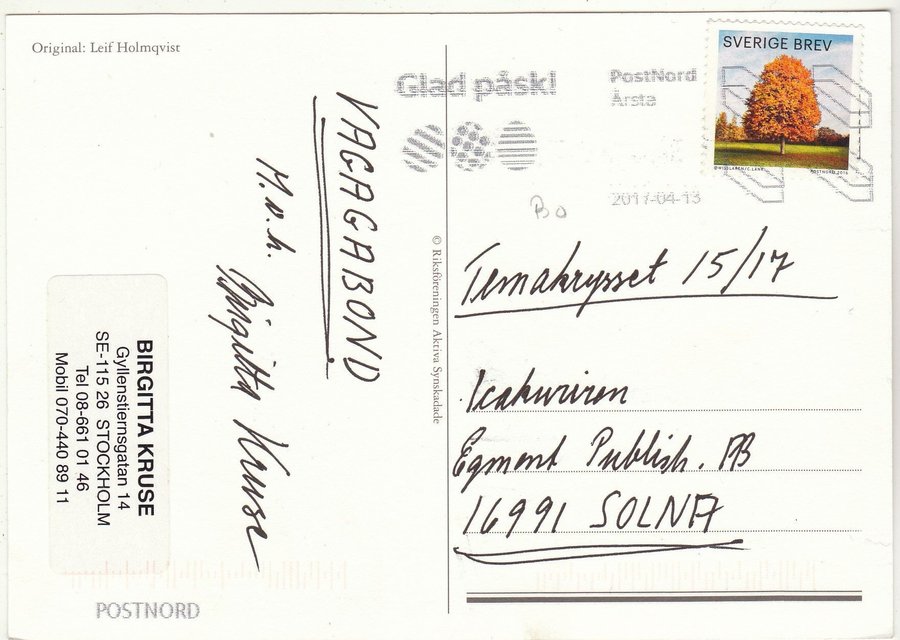 Original: Leif Holmqvist
VAGAGABOND
M.v.h. Birgitta Kruse
BIRGITTA KRUSE
Gyllenstiernsgatan 14
SE-115 26 STOCKHOLM
Tel 08-661 01 46
Mobil 070-440 89 11
POSTNORD
© Riksföreningen Aktiva Synskadade
Glad påsk!
PostNord
Årsta
2017-04-13
SVERIGE BREV
POSTNORD 2016
Bo
Temakrysset 15/17
Icakuriren
Egmont Publish. AB
16991 SOLNA